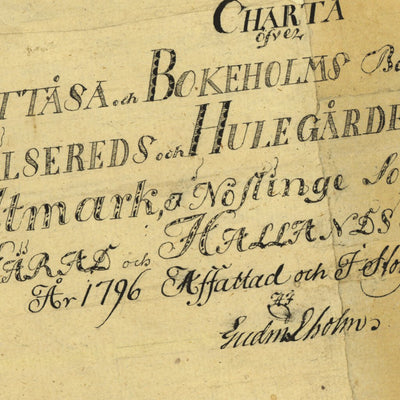 CHARTA
öfver
TTÅSA och BOKEHOLMS Bo
ALSEREDS och HULEGÅRDE
tmark, a Nöslinge So
HÄRAD och HALLANDS
År 1796 Affattad och I Sto
Af
Gudm Eholm.